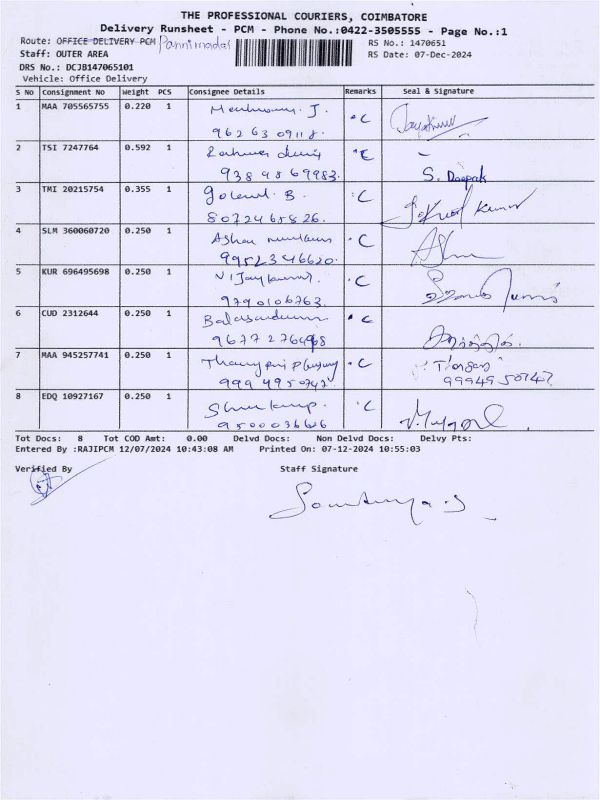 THE PROFESSIONAL COURIERS, COIMBATORE
Delivery Runsheet - PCM - Phone No.:0422-3505555 - Page No.:1
Route: OFFICE DELIVERY PCM Pannimadai
RS No.: 1470651
Staff: OUTER AREA
RS Date: 07-Dec-2024
DRS No.: DCJB147065101
Vehicle: Office Delivery
S No Consignment No Weight PCS Consignee Details Remarks Seal & Signature
1 MAA 705565755 0.220 1 J. C
96263 09118.
2 TSI 7247764 0.592 1
9389869983. S. Deepak
3 TMI 20215754 0.355 1 B. C
8072465826. Kumar
4 SLM 360060720 0.250 1 C
9952346620.
5 KUR 696495698 0.250 1 Vijaykumar. C
9790106763.
6 CUD 2312644 0.250 1 C
7 MAA 945257741 0.250 1 C
9994950747 99949 50747
8 EDQ 10927167 0.250 1 C
9500036616
Tot Docs: 8 Tot COD Amt: 0.00 Delvd Docs: Non Delvd Docs: Delvy Pts:
Entered By :RAJIPCM 12/07/2024 10:43:08 AM Printed On: 07-12-2024 10:55:03
Verified By Staff Signature